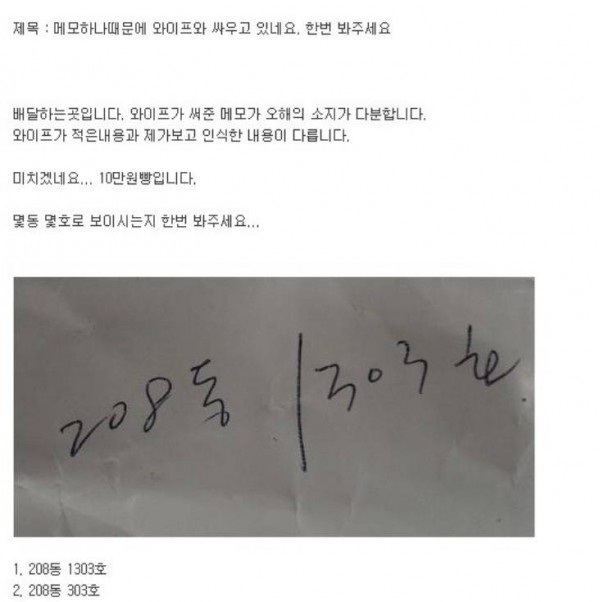 제목 : 메모하나때문에 와이프와 싸우고 있네요. 한번 봐주세요
배달하는곳입니다. 와이프가 써준 메모가 오해의 소지가 다분합니다.
와이프가 적은내용과 제가보고 인식한 내용이 다릅니다.
미치겠네요... 10만원빵입니다.
몇동 몇호로 보이시는지 한번 봐주세요...
208동 / 303호
1. 208동 1303호
2. 208동 303호